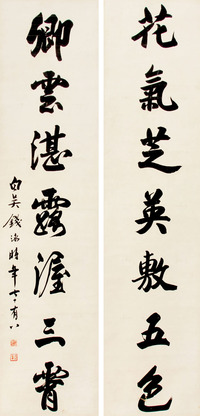 花氣芝英敷五色
卿雲湛露渥三霄
白英錢泳時年七十有八